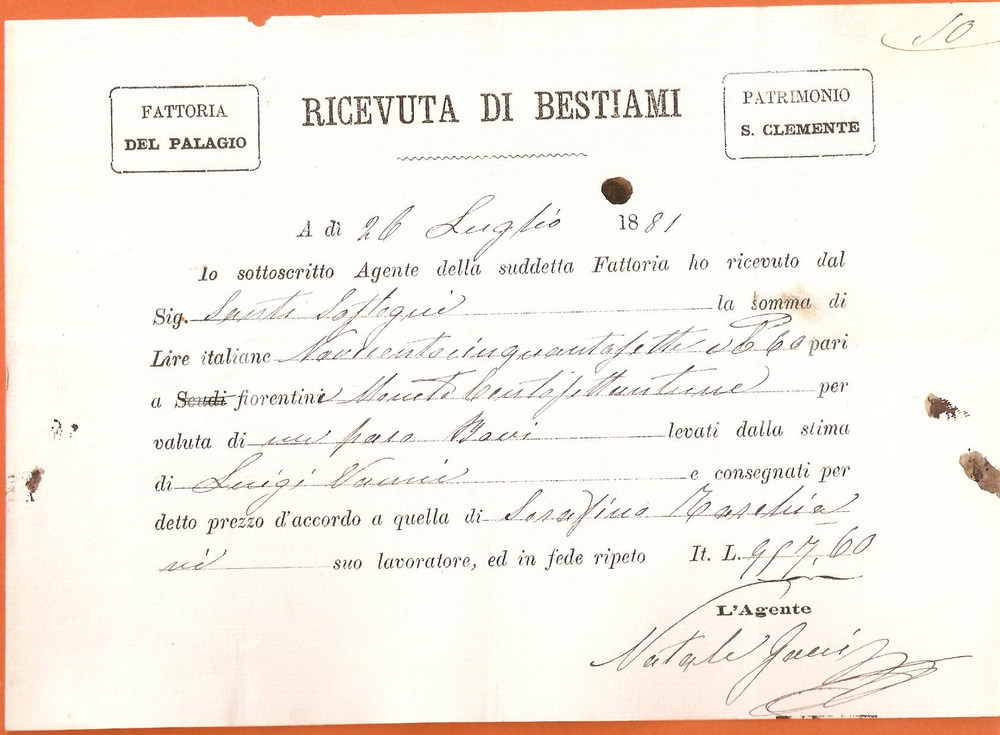 10
FATTORIA
DEL PALAGIO
RICEVUTA DI BESTIAMI
PATRIMONIO
S. CLEMENTE
A dì 26 Luglio 1881
Io sottoscritto Agente della suddetta Fattoria ho ricevuto dal
Sig. Santi Sostegni la somma di
Lire italiane Novecentocinquantasette e C 60 pari
a Scudi fiorentini Monete Centosettantuna per
valuta di un paro Bovi levati dalla stima
di Luigi Vannini e consegnati per
detto prezzo d'accordo a quella di Serafino Marchia
ni suo lavoratore, ed in fede ripeto It. L. 957,60
L'Agente
Natale